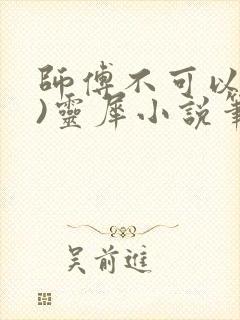 師傅不可以
)靈犀小說
吴前進